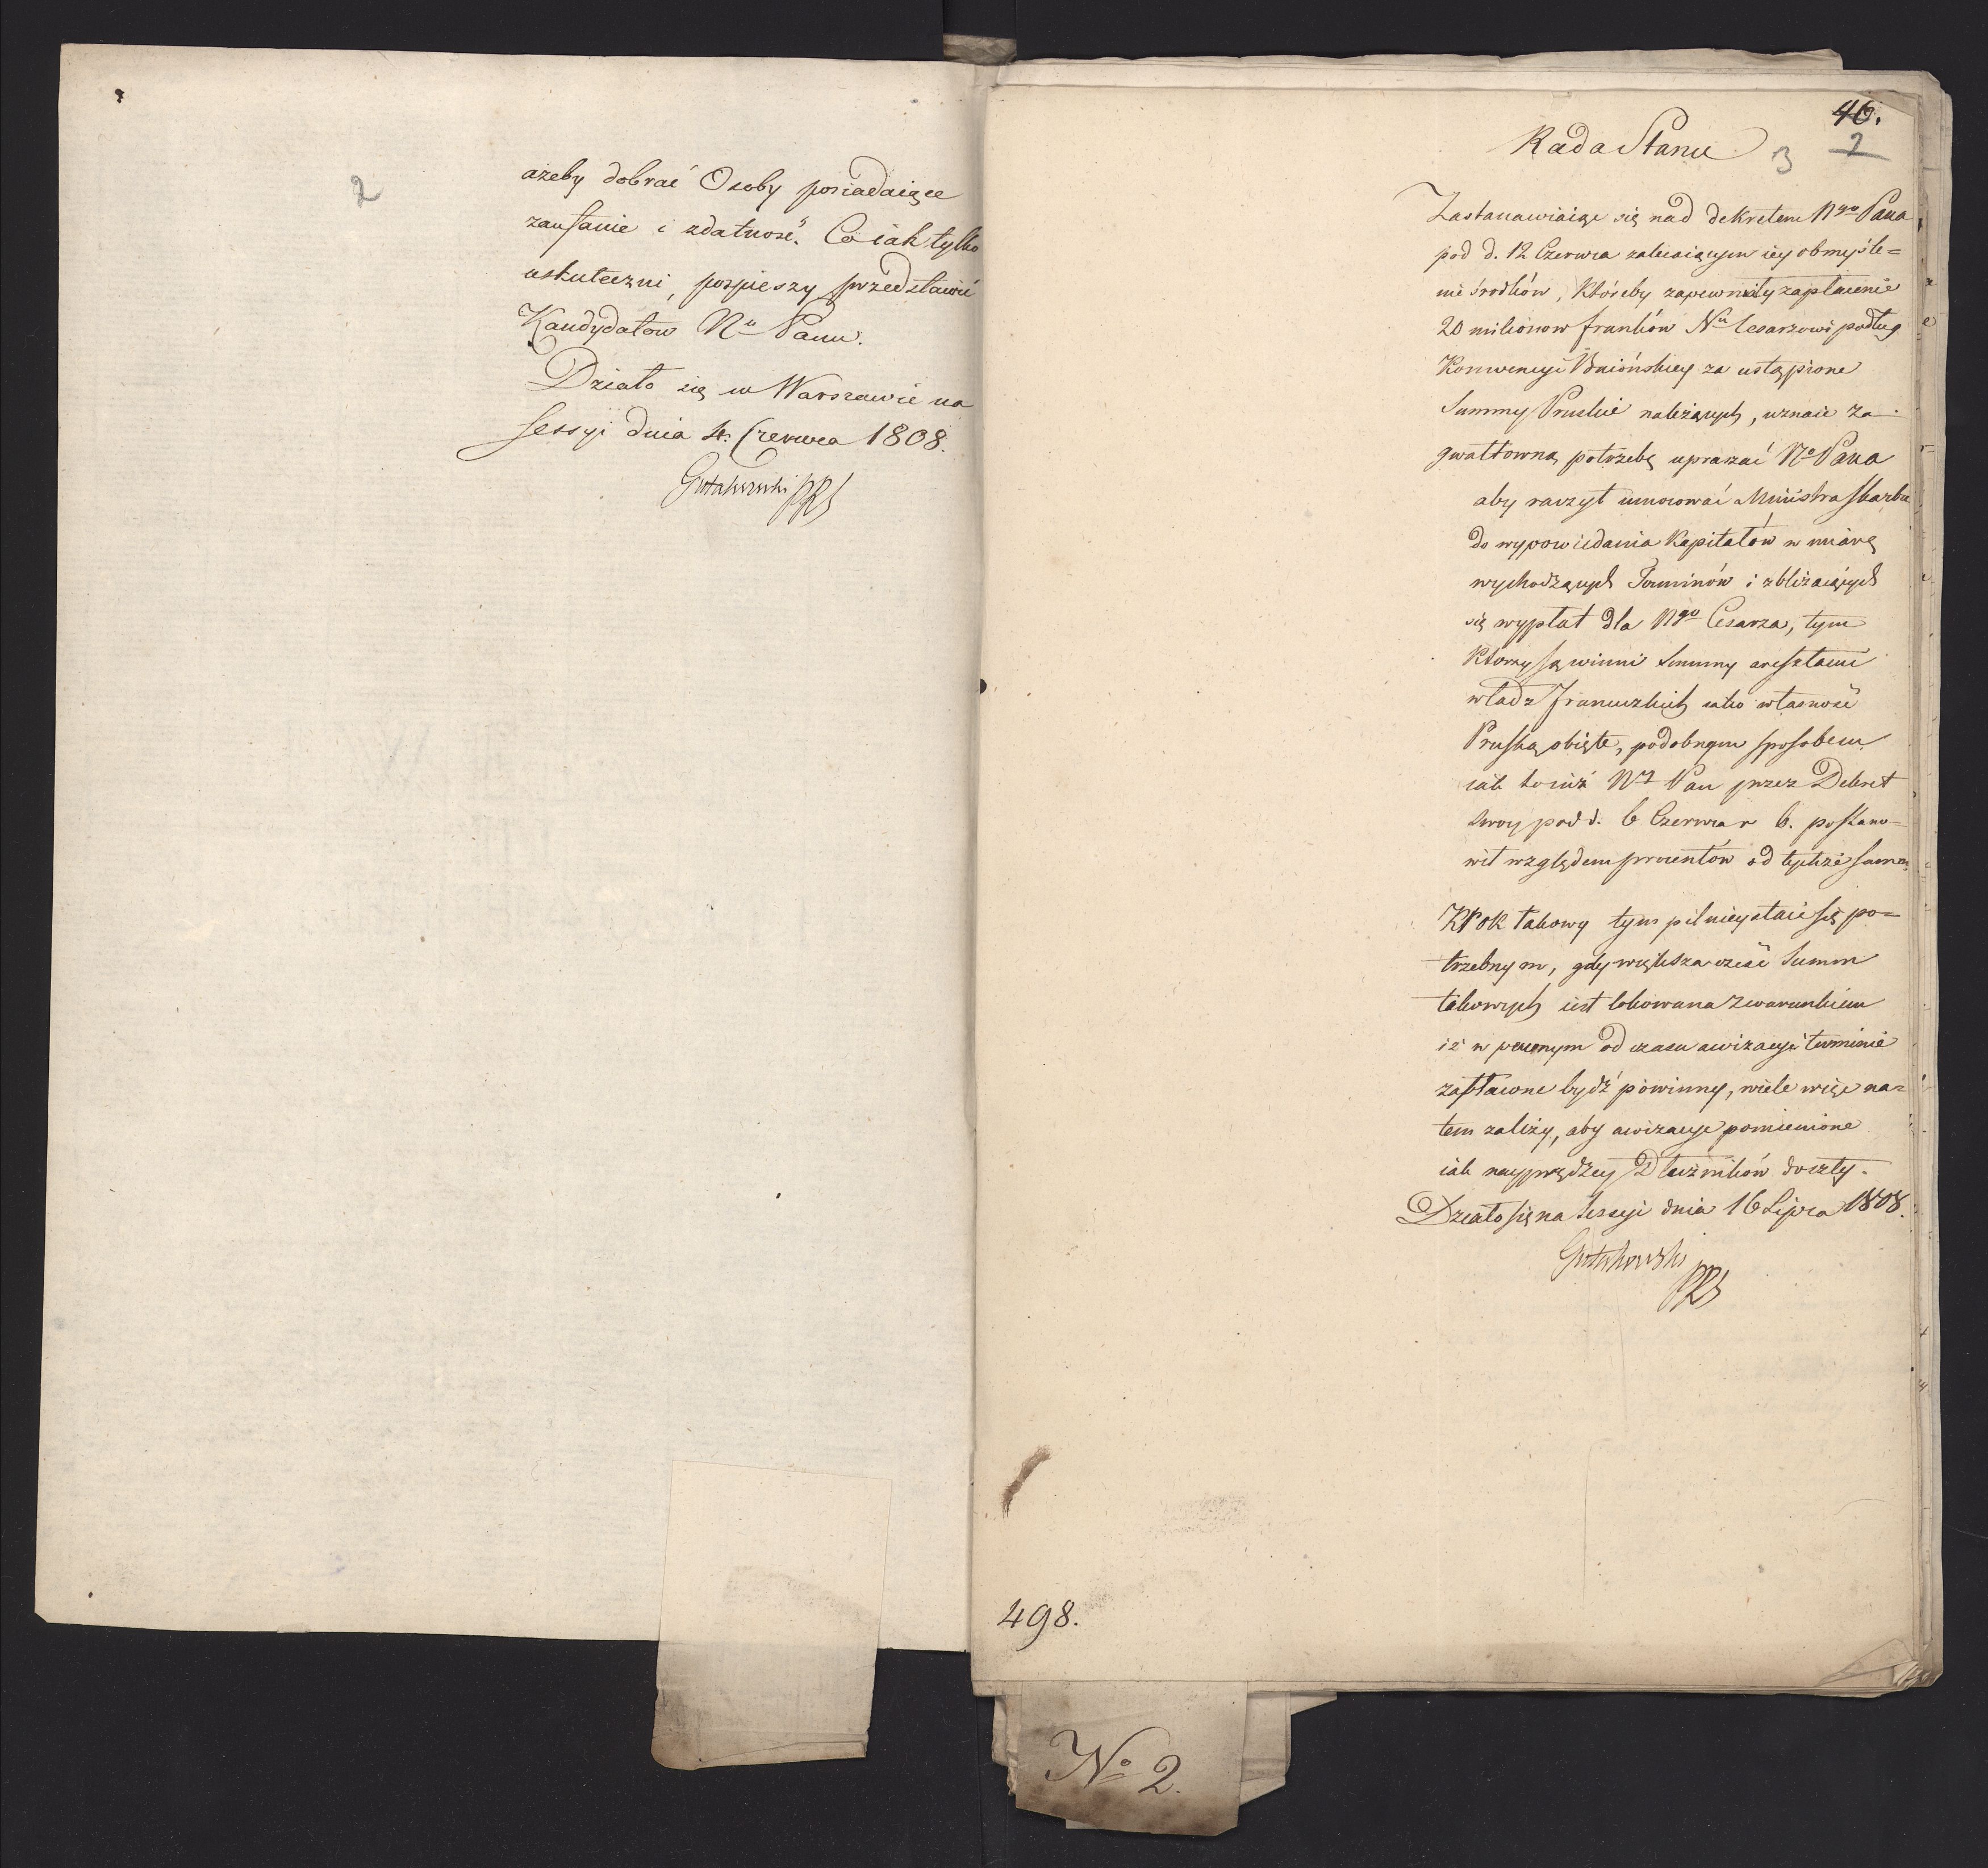 2
ażeby dobrać Osoby posiadaiące
zaufanie i zdatność. Co iak tylko
uskuteczni, pospieszy przedstawić
Kandydatow N<sup>u</sup> Panu.
Działo się w Warszawie na
Sessyi dnia 4. Czerwca 1808.
Gutakowski PRS
40.
2
3
Rada Stanu
Zastanawiaiąc się nad dekretem N<sup>go</sup> Pana
pod d. 12 Czerwca zalecaiącym iey obmyśle=
nie środków, któreby zapewniały zapłacenie
20 milionow franków N<sup>u</sup> Cesarzowi podług
Konwencyi Baiońskiey za ustąpione
Summy Pruskie należących, uznaie za
gwałtowną potrzebę upraszać N<sup>o</sup> Pana
aby raczył umocować Ministra Skarbu
do wypowiedania Kapitałów w miarę
wychodzących Terminów i zbliżaiących
się wypłat dla N<sup>go</sup> Cesarza, tym
którzy są winni Summy aresztami
władz Francuzkich iako własność
Pruską obięte, podobnym sposobem
iak to iuż N<sup>y</sup> Pan przez Dekret
swoy pod d. 6 Czerwca r b. postano=
wił względem procentów od tychże Summ.
Krok takowy tym pilniey staie się po=
trzebnym, gdy większa część Summ
takowych iest lokowana z warunkiem
iż w pewnym od czasu awizacyi terminie
zapłacone bydź powinny, wiele więc na=
tem zależy, aby awizacye pomienione
iak nayprędzey Dłużników doszły.
Działo się na Sessyi dnia 16 Lipca 1808.
Gutakowski
PRS
498.
N<sup>o</sup> 2.